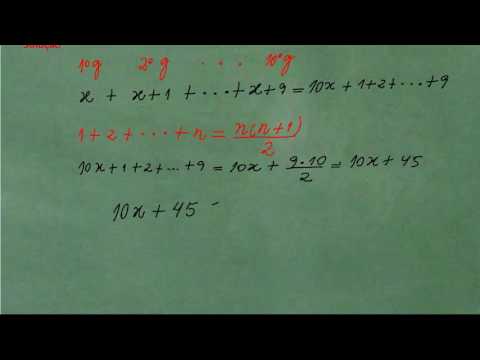 Solução:
1º g 2º g . . . 10º g
x + x+1 + ··· + x+9 = 10x + 1+2+ ··· +9
1+2+ ··· +n = n(n+1)/2
10x+1+2+ ... +9 = 10x + 9·10/2 = 10x + 45
10x + 45 =